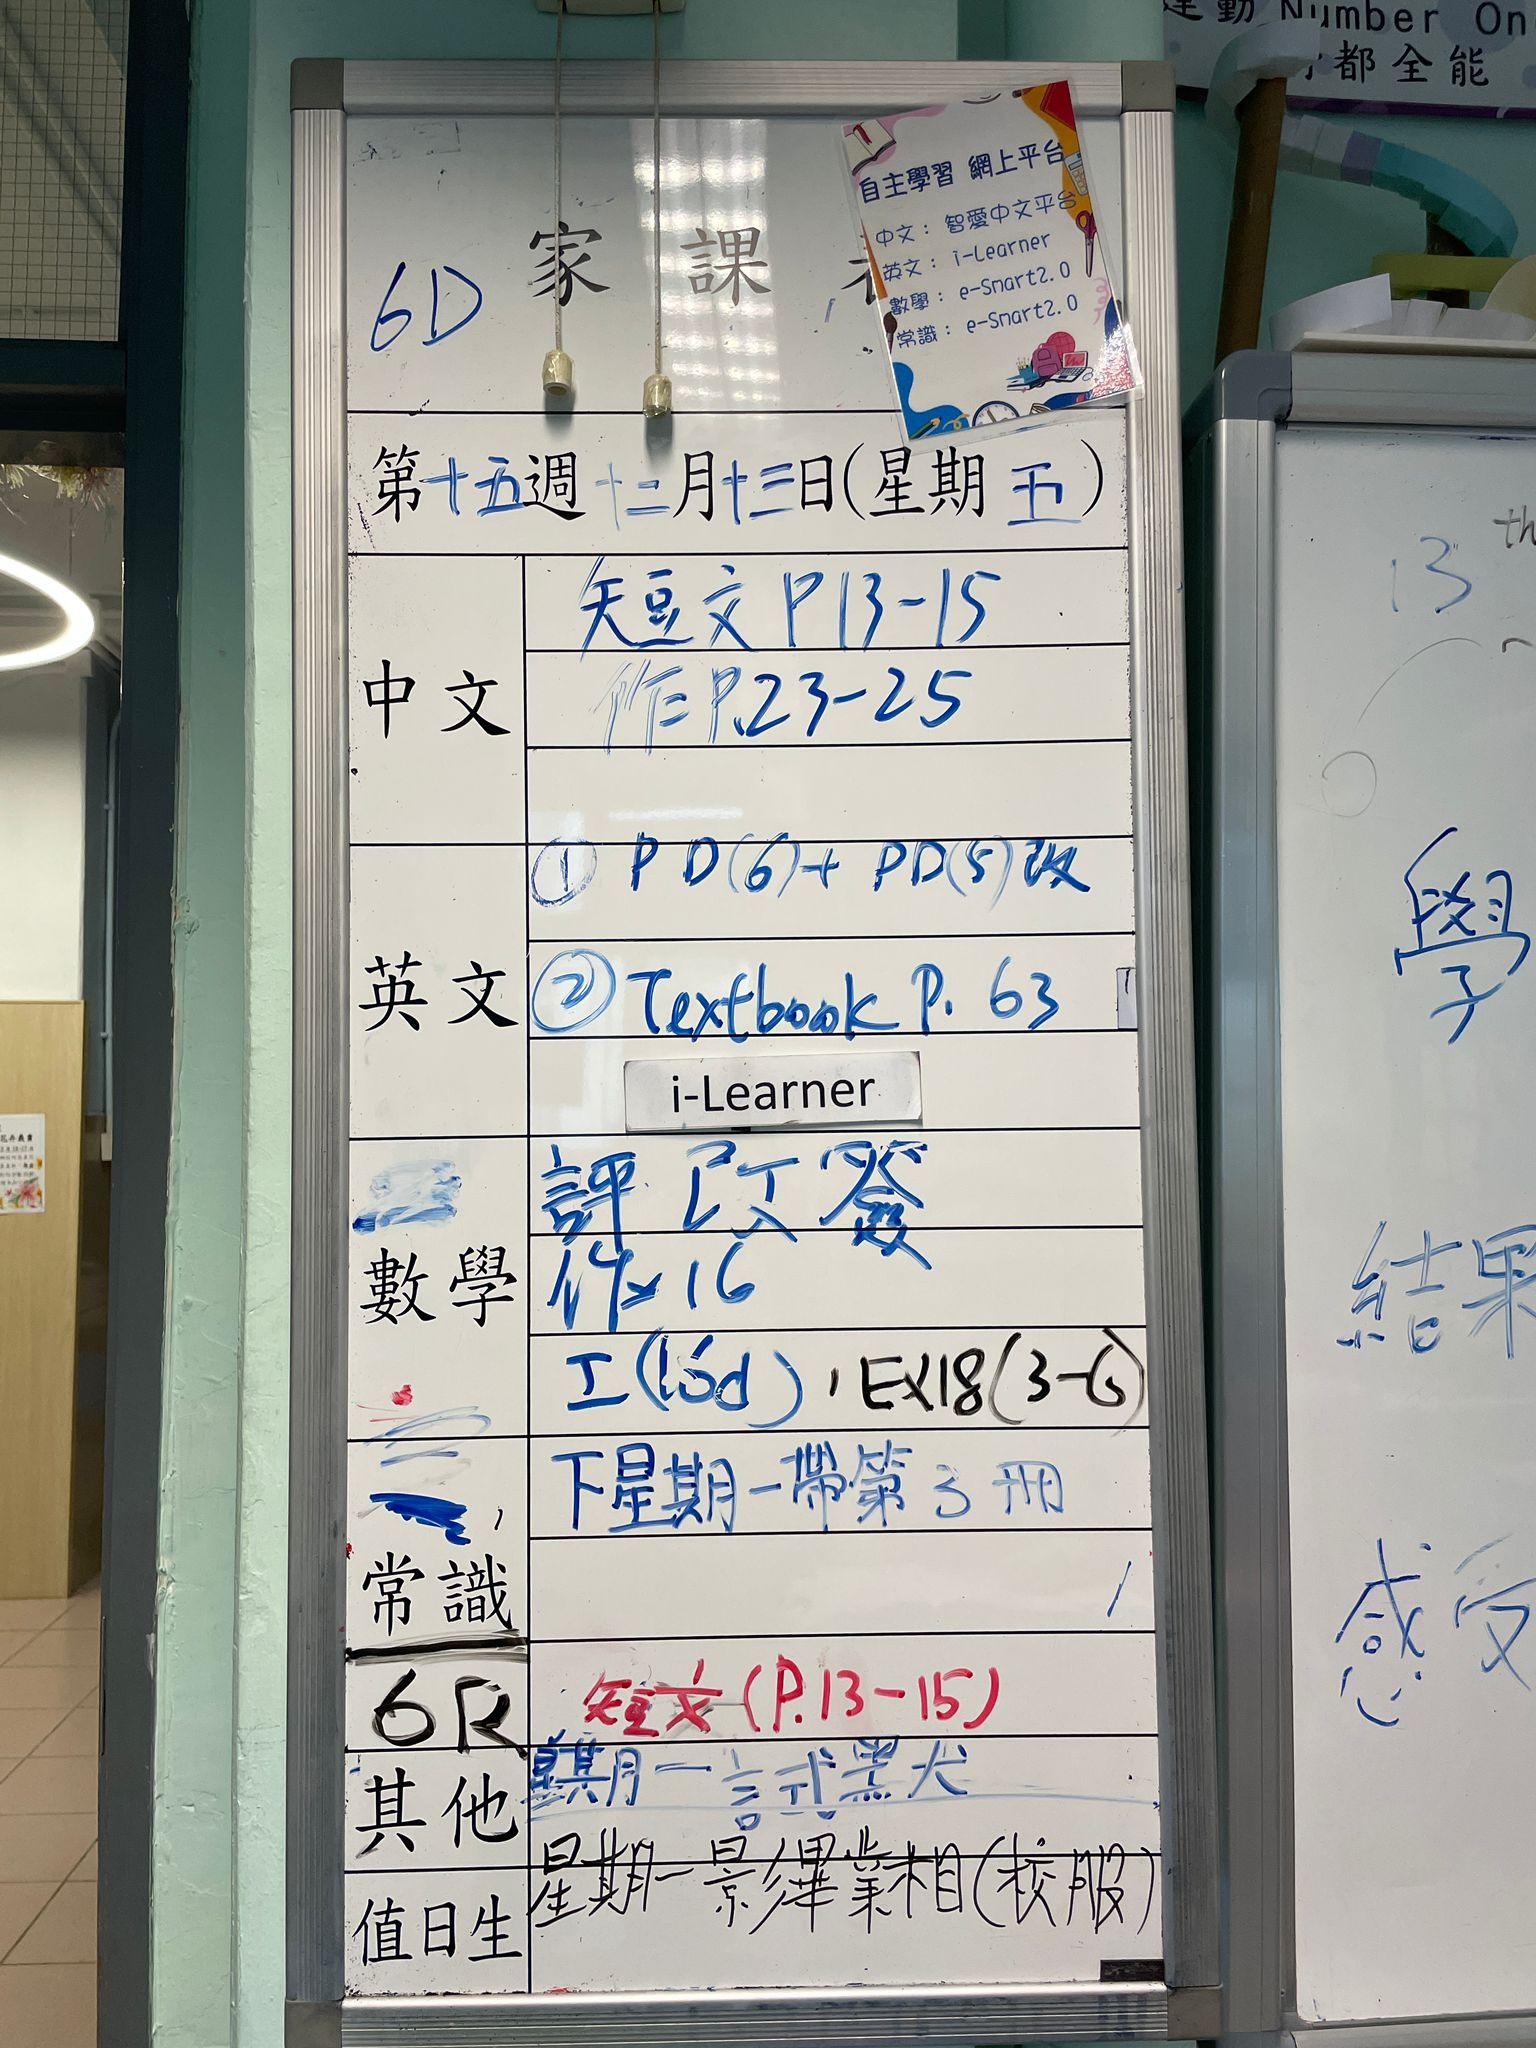 運動 Number On
都全能
自主學習 網上平台
中文： 智愛中文平台
英文： i-Learner
數學： e-Smart2.0
常識： e-Smart2.0
6D 家課
第十五週十二月十三日(星期五)
中文
短文 P13-15
作 P.23-25
英文
① PD(6)+ PD(5)改
② Textbook P. 63
i-Learner
數學
評 改 簽
作 16
工(15d), EX18(3-6)
常識
下星期一帶第3冊
6R
短文(P.13-15)
其他
星期一試黑犬
值日生
星期一影畢業相(校服)
th
13
學
結果
感受